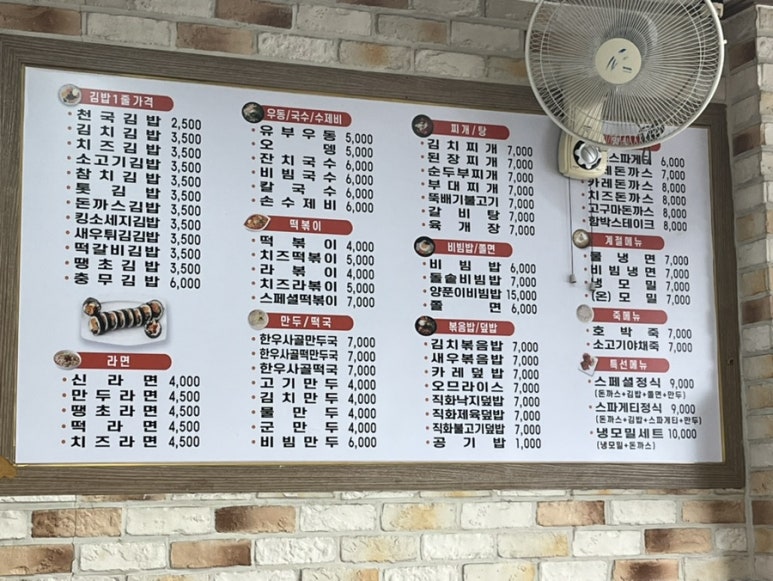 김밥1줄가격
천국김밥 2,500
김치김밥 3,500
치즈김밥 3,500
소고기김밥 3,500
참치김밥 3,500
톳김밥 3,500
돈까스김밥 3,500
킹소세지김밥 3,500
새우튀김김밥 3,500
떡갈비김밥 3,500
땡초김밥 3,500
충무김밥 6,000
라면
신라면 4,000
만두라면 4,500
땡초라면 4,500
떡라면 4,500
치즈라면 4,500
우동/국수/수제비
유부우동 5,000
오뎅 5,000
잔치국수 6,000
비빔국수 6,000
칼국수 6,000
손수제비 6,000
떡볶이
떡볶이 4,000
치즈떡볶이 5,000
라볶이 4,000
치즈라볶이 5,000
스페셜떡볶이 7,000
만두/떡국
한우사골만두국 7,000
한우사골떡만두국 7,000
한우사골떡국 7,000
고기만두 4,000
김치만두 4,000
물만두 4,000
군만두 4,000
비빔만두 6,000
찌개/탕
김치찌개 7,000
된장찌개 7,000
순두부찌개 7,000
부대찌개 7,000
뚝배기불고기 7,000
갈비탕 7,000
육개장 7,000
비빔밥/쫄면
비빔밥 6,000
돌솥비빔밥 7,000
양푼이비빔밥 15,000
쫄면 6,000
볶음밥/덮밥
김치볶음밥 7,000
새우볶음밥 7,000
카레덮밥 7,000
오므라이스 7,000
직화낙지덮밥 7,000
직화제육덮밥 7,000
직화불고기덮밥 7,000
공기밥 1,000
스파게티 6,000
돈까스 7,000
카레돈까스 8,000
치즈돈까스 8,000
고구마돈까스 8,000
함박스테이크 8,000
계절메뉴
물냉면 7,000
비빔냉면 7,000
냉모밀 7,000
(온)모밀 7,000
죽메뉴
호박죽 7,000
소고기야채죽 7,000
특선메뉴
스페셜정식 9,000
(돈까스+김밥+쫄면+만두)
스파게티정식 9,000
(돈까스+김밥+스파게티+만두)
냉모밀세트 10,000
(냉모밀+돈까스)